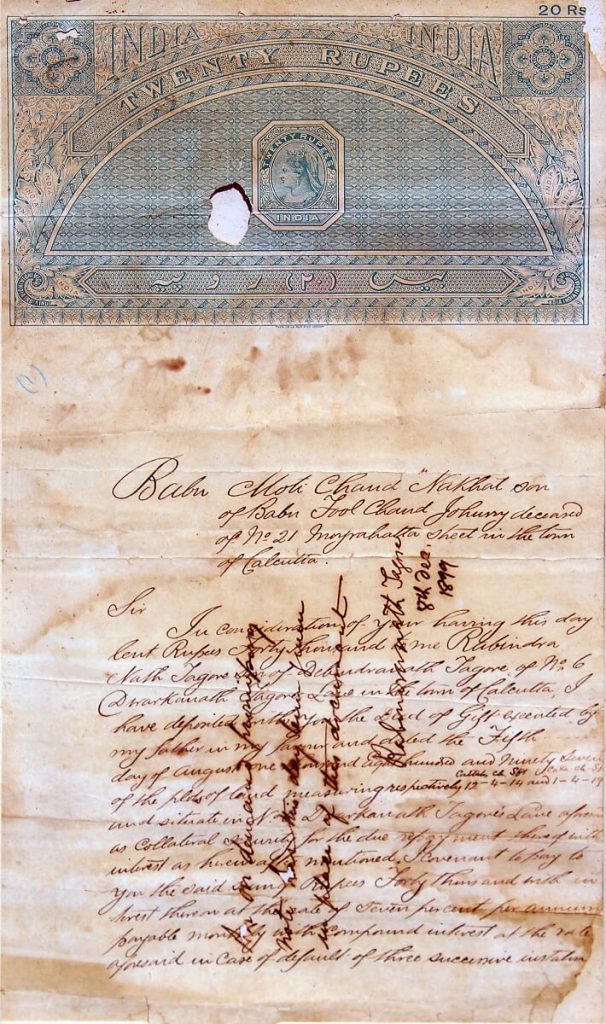 20 Rs
INDIA INDIA
TWENTY RUPEES
TWENTY RUPEES
INDIA
بیس (۲۰) روپیہ
Babu Moti Chand Nakhat son
of Babu Fool Chand Johurry deceased
of No 21 Moyrahatta street in the town
of Calcutta.
Sir
In consideration of your having this day
lent Rupees Forty thousand to me Rabindra
Nath Tagore son of Debendranath Tagore of No. 6
Dwarkanath Tagore's Lane in the town of Calcutta, I
have deposited with you the deed of Gift executed by
my father in my favour and dated the Fifth
day of August one thousand eight hundred and ninety seven
of the plots of land measuring respectively 12-4-14 and 1-4-19
and situate in Dwarkanath Tagore's Lane aforesaid
as Collateral security for the due repayment thereof with
interest as hereinafter mentioned. I covenant to pay to
you the said sum Rupees Forty thousand with in
terest thereon at the rate of Seven percent per annum
payable monthly with compound interest at the rate
aforesaid in case of default of three successive instalm
on demand promissory
note this day given
in place of this document
Rabindranath Tagore
8th Dec.
1899